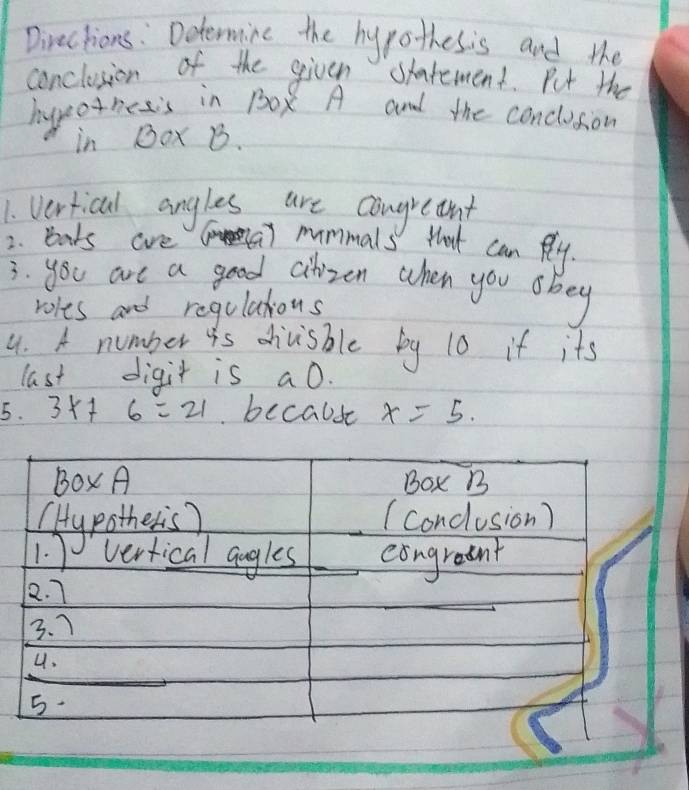 Directions: Determine the hypothesis and the
conclusion of the given statement. Put the
hypothesis in Box A and the conclusion
in Box B.
1. Vertical angles are congreant
2. Bats are (a) mammals that can fly.
3. you are a good citizen when you obey
roles and regulations
4. A number is divisble by 10 if its
last digit is a 0.
5. 3x+ 6 = 21. because x = 5.
Box A Box B
(Hypothesis) (Conclusion)
1.) Vertical angles congreant
2.)
3.)
4.
5.